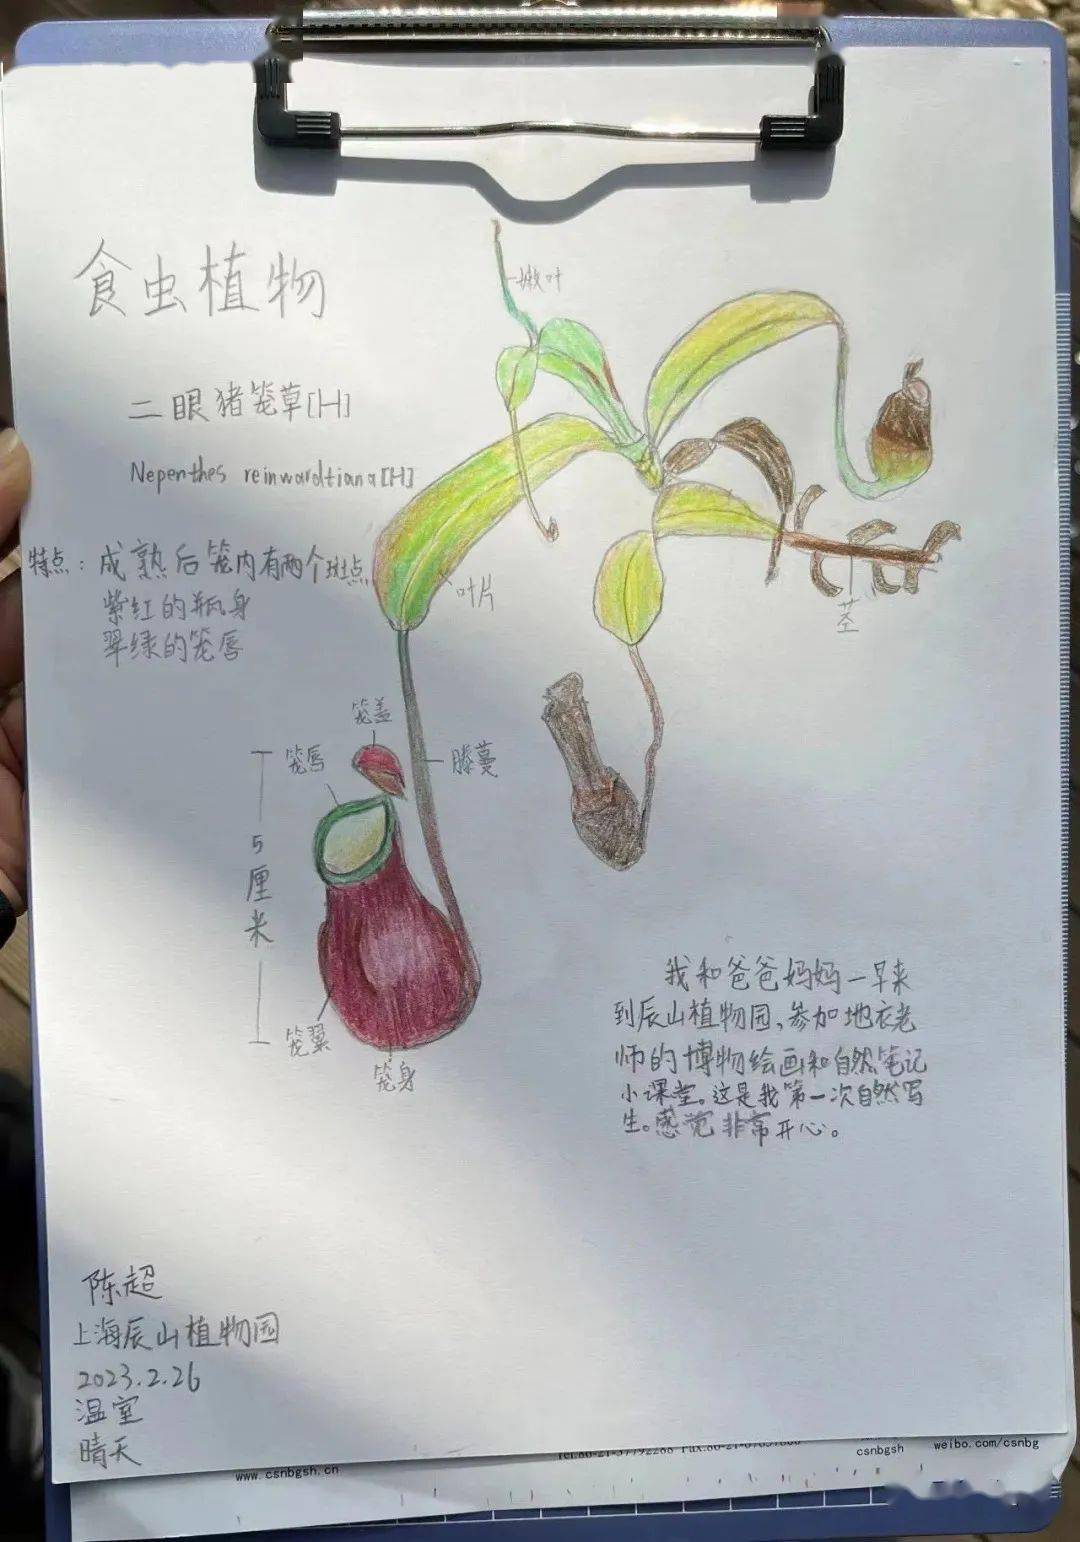 食虫植物
二眼猪笼草[H]
Nepenthes reinwardtiana[H]
特点：成熟后笼内有两个斑点
紫红的瓶身
翠绿的笼唇
嫩叶
叶片
茎
笼盖
笼唇
藤蔓
5厘米
笼翼
笼身
我和爸爸妈妈一早来
到辰山植物园，参加地衣老
师的博物绘画和自然笔记
小课堂。这是我第一次自然写
生。感觉非常开心。
陈超
上海辰山植物园
2023.2.26
温室
晴天
www.csnbgsh.cn
csnbgsh
weibo.com/csnbg